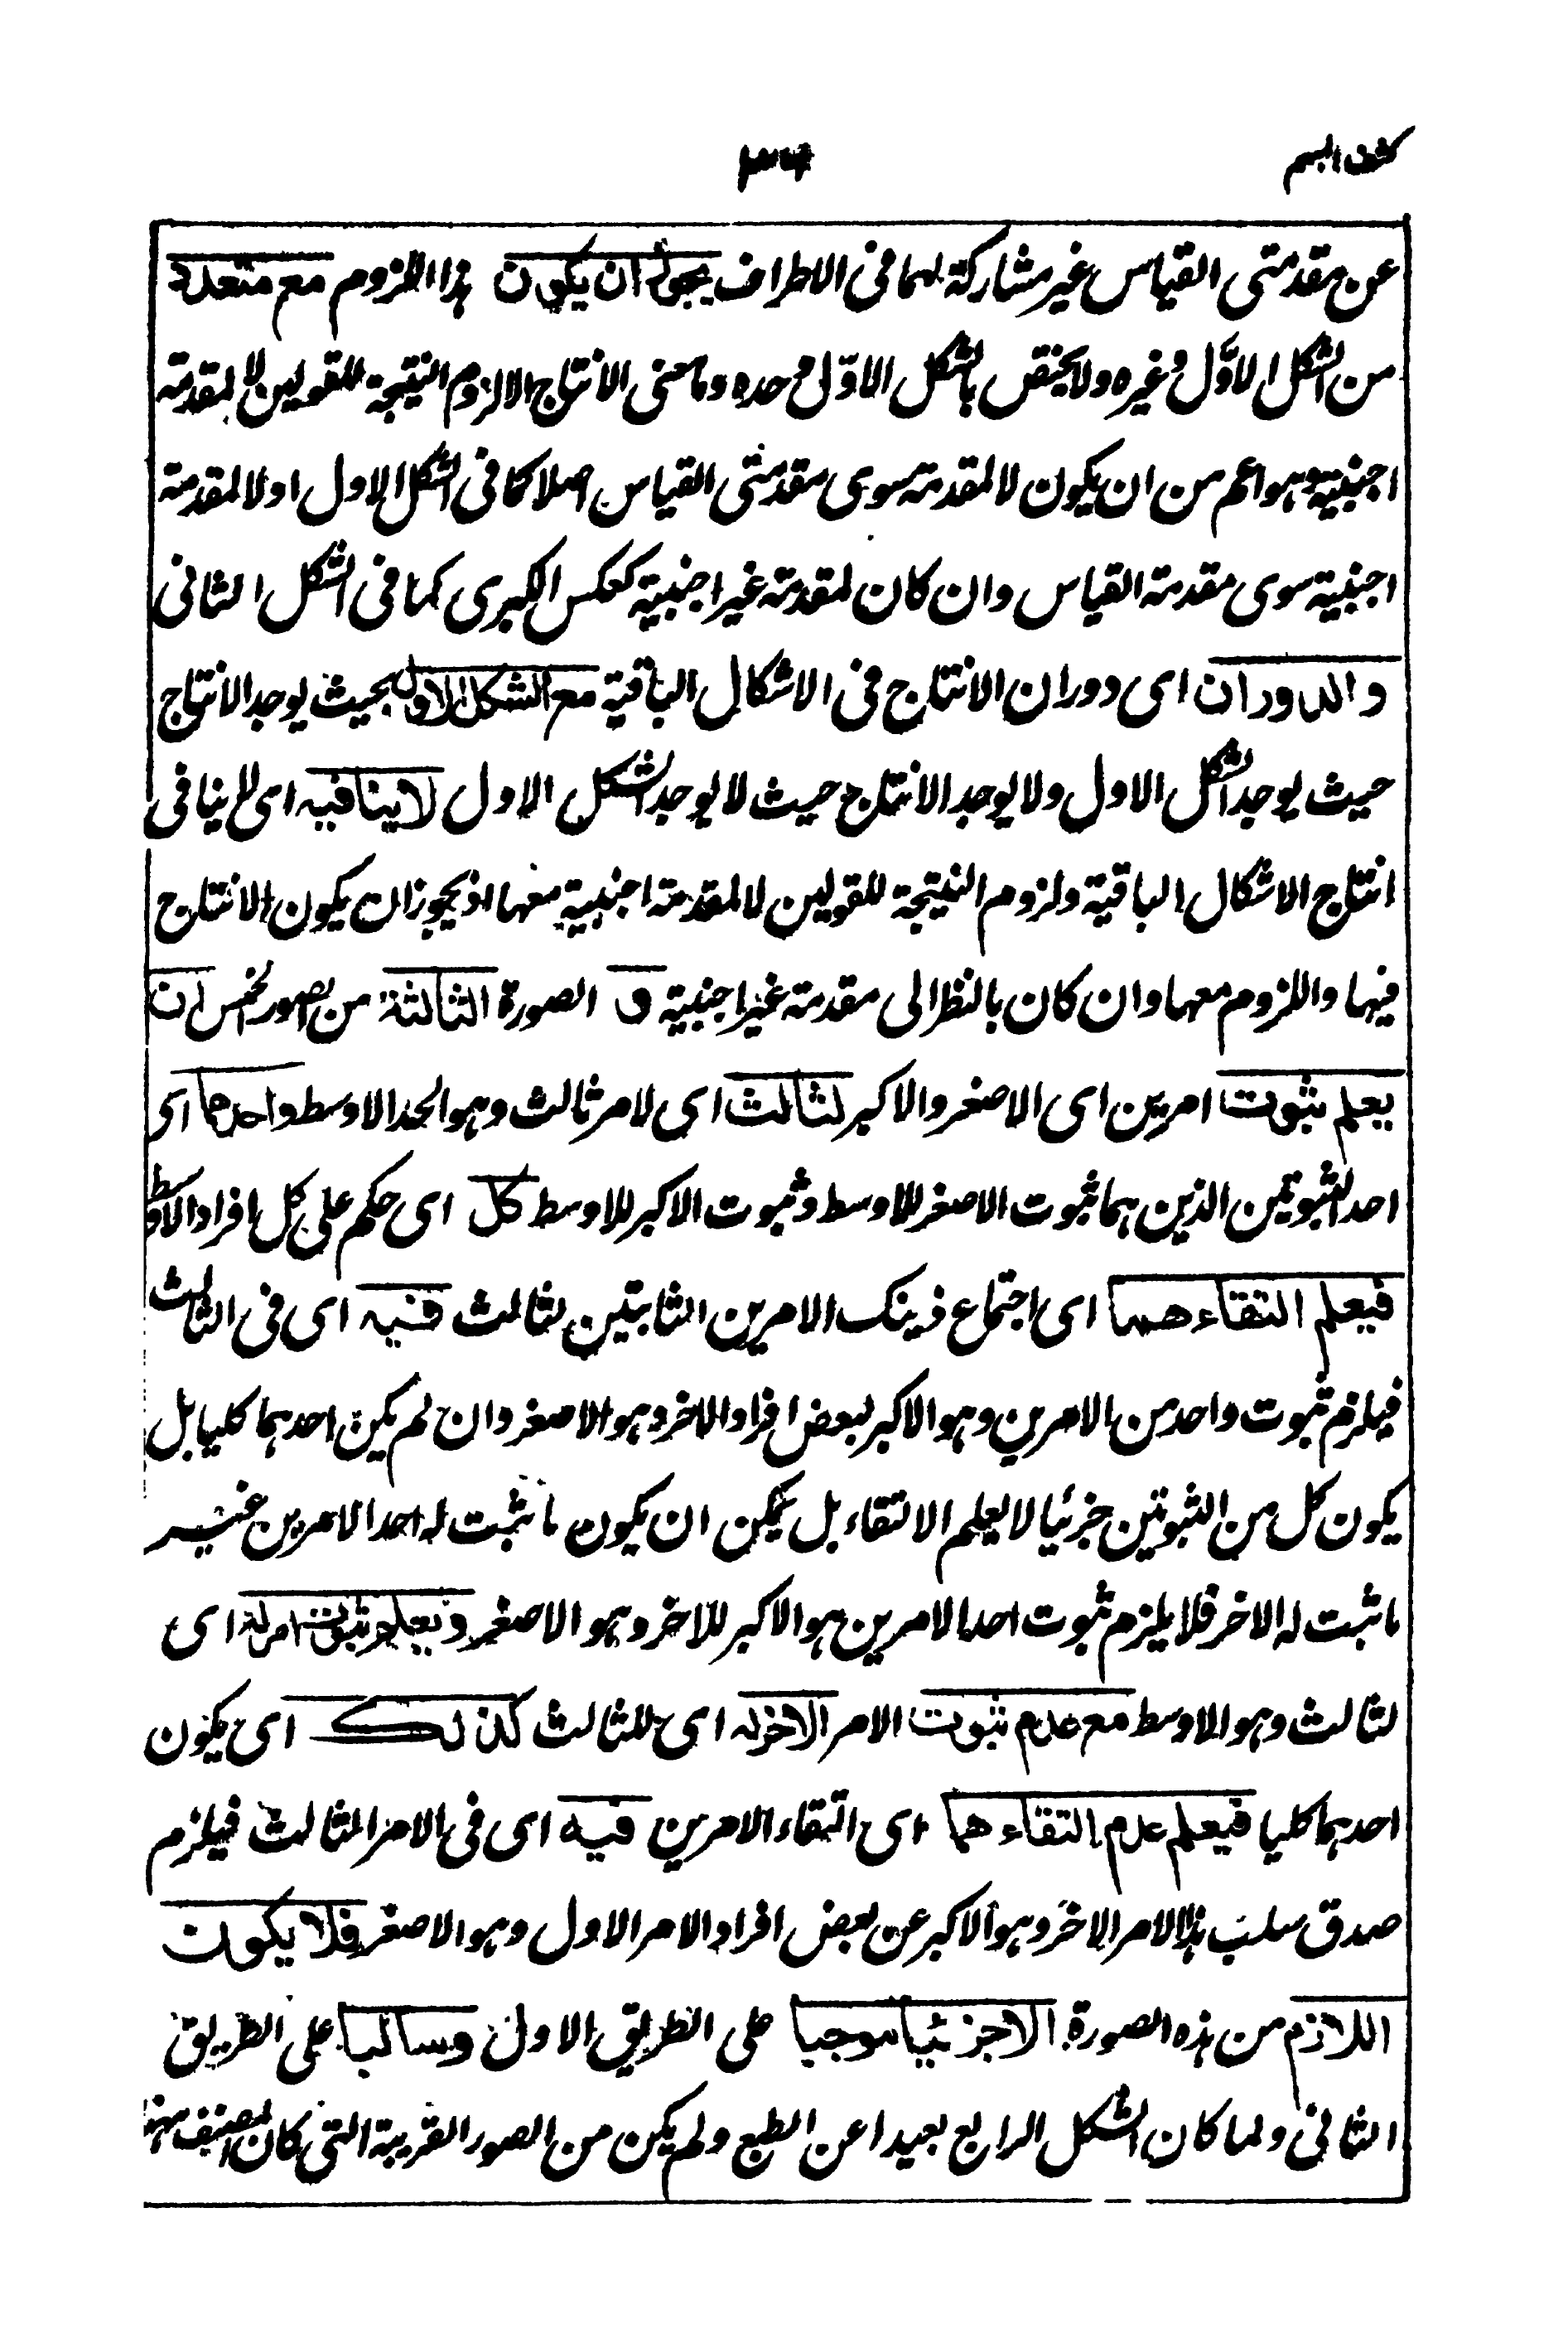 كشف المبهم
٣٤
عن مقدمتى القياس غير مشاركة لهما فى الاطراف يجوز ان يكون هذا اللزوم مع متعدد
من الشكل الاوّل وغيره ولا يختص بالشكل الاوّل وحده وما معنى الانتاج الا لزوم النتيجة للقولين لا لمقدمة
اجنبية وهو اعم من ان يكون لا لمقدمة سوى مقدمتى القياس اصلا كما فى الشكل الاول او لا لمقدمة
اجنبية سوى مقدمة القياس وان كان لمقدمة غير اجنبية كعكس الكبرى كما فى الشكل الثانى
والدوران اى دوران الانتاج فى الاشكال الباقية مع الشكل الاول بحيث يوجد الانتاج
حيث يوجد الشكل الاول ولا يوجد الانتاج حيث لا يوجد الشكل الاول لا ينافيه اى لا ينافى
انتاج الاشكال الباقية ولزوم النتيجة للقولين لا لمقدمة اجنبية معهما اذ يجوز ان يكون الانتاج
فيها واللزوم معهما وان كان بالنظر الى مقدمة غير اجنبية و الصورة الثالثة من الصور الخمس ان
يعلم ثبوت امرين اى الاصغر والاكبر لثالث اى لامر ثالث وهو الحد الاوسط واحدهما اى
احد الثبوتين الذين هما ثبوت الاصغر للاوسط وثبوت الاكبر للاوسط كل اى حكم على كل افراد الاوسط
فيعلم التقاءهما اى اجتماع ذينك الامرين الثابتين لثالث فيه اى فى الثالث
فيلزم ثبوت واحد من الامرين وهو الاكبر لبعض افراد الاخر وهو الاصغر وان لم يكن احدهما كليا بل
يكون كل من الثبوتين جزئيا لا يعلم الالتقاء بل يمكن ان يكون ما ثبت له احد الامرين غير
ما ثبت له الاخر فلا يلزم ثبوت احد الامرين هو الاكبر للاخر وهو الاصغر ويعلم ثبوت امر له اى
لثالث وهو الاوسط مع عدم ثبوت الامر الاخر له اى للثالث كذلك اى يكون
احدهما كليا فيعلم عدم التقاءهما اى التقاء الامرين فيه اى فى الامر الثالث فيلزم
صدق سلب هذا الامر الاخر وهو الاكبر عن بعض افراد الامر الاول وهو الاصغر فلا يكون
اللازم من هذه الصورة الا جزئيا موجبا على الطريق الاول وسالبا على الطريق
الثانى ولما كان الشكل الرابع بعيدا عن الطبع ولم يكن من الصور القريبة التى كان المصنف